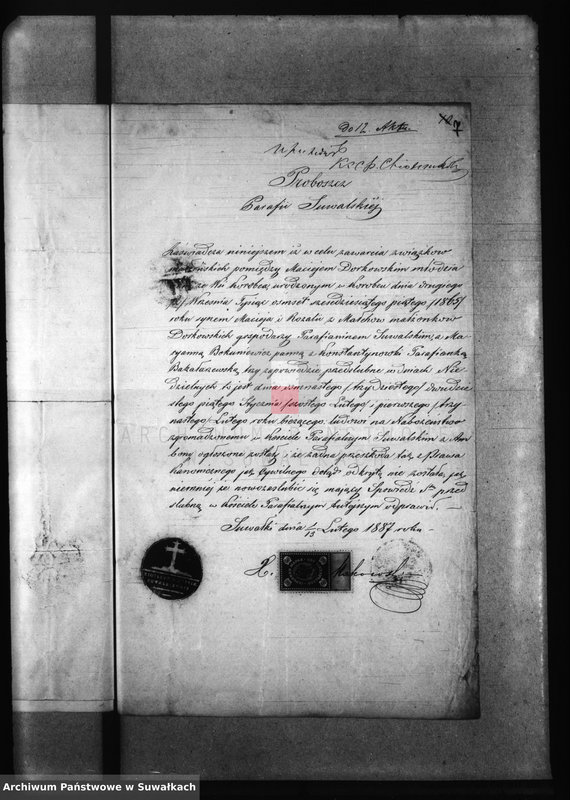 do 12. Aktu
7
Proboszcz
Parafii Suwalskiéj
Zaświadcza niniejszem iż w celu zawarcia związków
małżeńskich pomiędzy Maciejem Dorkowskim młodzia
ze Wsi Korobca, urodzonym w Korobcu dnia drugiego
Września Tysiąc ośmset sześdziesiątego piątego /1865/
roku synem Macieja i Rozalii z małżonków
Dorkowskich gospodarzy Parafianinem Suwalskim, a Ma-
ryanną Bokuniewicz panną z Konstantynowki Parafianką
Bakałarzewską, trzy zapowiedzie przedślubne w dniach Nie-
dzielnych to jest dnia ośmnastego /trzydziestego/ dwudzie-
stego piątego Stycznia /szóstego Lutego/ i pierwszego /trzy-
nastego/ Lutego roku bieżącego ludowi na Nabożeństwo
zgromadzonemu w Kościele Parafialnym Suwalskim z Am-
bony ogłoszone zostały i że żadna przeszkoda tak z Prawa
Kanonicznego jak Cywilnego dotąd odkrytą nie została, jak
niemniej że nowozaślubić się mający Spowiedź Stą przed
ślubną w Kościele Parafialnym tutejszym odprawił. —
Suwałki dnia 1/13 Lutego 1887 roku —
X.
ARCHIWUM
Archiwum Państwowe w Suwałkach